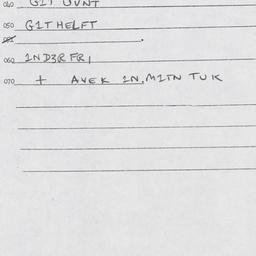 040 G1T UVNT
050 G1THELFT
051 .
060 1ND3R FR,
070 + AVEK 1N, M1TN TUK